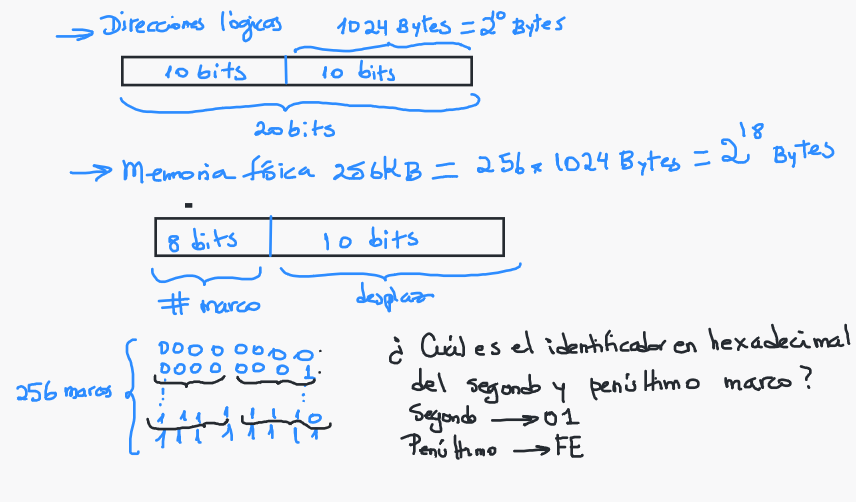 → Direcciones lógicas 1024 Bytes = 2^0 Bytes
10 bits 10 bits
20 bits
→ Memoria física 256KB = 256 * 1024 Bytes = 2^18 Bytes
8 bits 10 bits
# marco desplaz
256 marcos
0000 0000
0000 0001
1111 1110
1111 1111
¿ Cuál es el identificador en hexadecimal
del segundo y penúltimo marco?
Segundo → 01
Penúltimo → FE